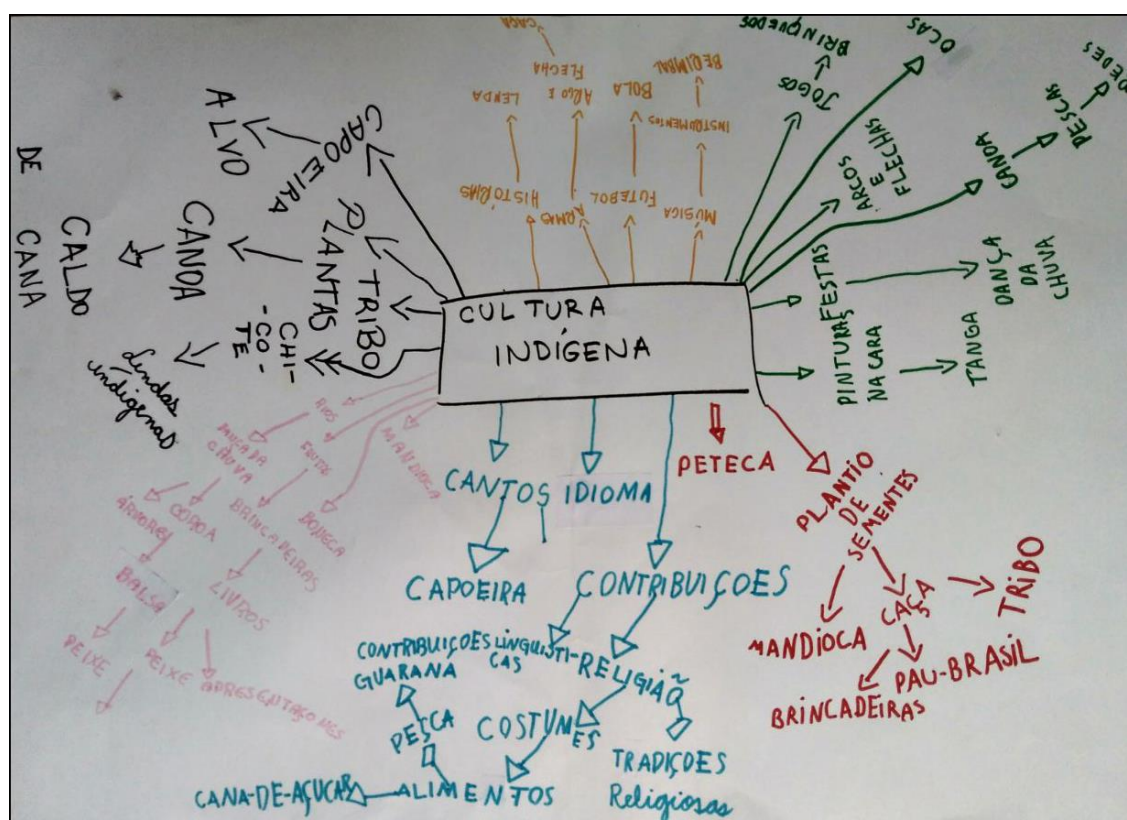 CULTURA
INDÍGENA
CAPOEIRA
ALVO
PLANTAS
TRIBO
CANOA
CALDO
DE CANA
CHI-
-CO-
TE
Lendas
indígenas
HISTÓRIAS
LENDA
ARMAS
ARCO E
FLECHA
CAÇA
FUTEBOL
BOLA
MÚSICA
INSTRUMENTOS
BERIMBAL
JOGOS
BRINQUEDOS
OCAS
ARCOS
E
FLECHAS
CANOA
PESCAS
REDES
FESTAS
DANÇA
DA
CHUVA
PINTURAS
NA CARA
TANGA
PETECA
PLANTIO
DE
SEMENTES
MANDIOCA
CAÇAS
TRIBO
PAU-BRASIL
BRINCADEIRAS
CANTOS
IDIOMA
CAPOEIRA
CONTRIBUIÇOES
CONTRIBUIÇOES LINGUISTI-
CAS
RELIGIÃO
TRADIÇOES
Religiosas
COSTUMES
ALIMENTOS
PESCA
GUARANA
CANA-DE-AÇUCAR
MANDIOCA
RIOS
FRUTOS
BONECA
CHUVA
BRINCADEIRAS
COROA
ÁRVORES
LIVROS
BALSA
PEIXE
PEIXE
APRESENTAÇOMES